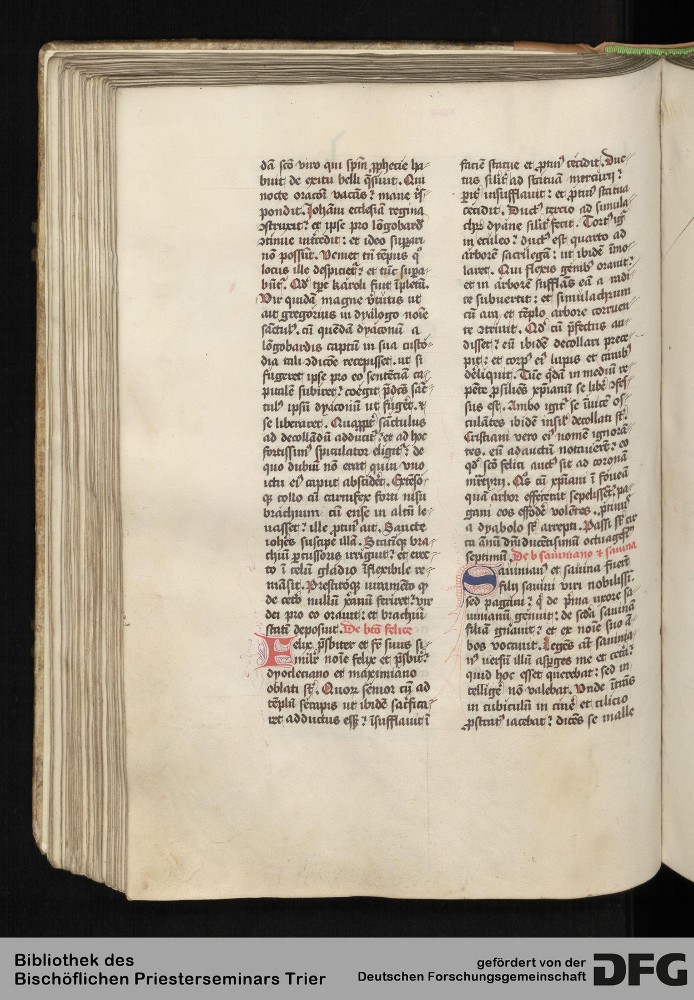 dā scō viro qui spm̄ ꝓphecie ha-
buit de exitu belli q̄siuit. Qui
nocte oracōi vacās? mane r̄s-
pondit. Johāni ecclesiā regina
ↄstruxit? et ipse pro lōgobardꝭ
ↄtinue intrcedit: et ideo supari
nō possūt. Veniet tn̄ tēpus qͦ
locus ille despiciet᷑? et tūc supa-
būt᷑. Qd̄ tꝑe karoli fuit īpletū.
Vir quidā magne v̄tutis ut
ait gregorius in dyalogo noīe
sāctulꝰ. cū quēdā dyaconū a
lōgobardis captū in sua custo-
dia tali ↄdicōe recepisset. ut si
fugeret ipse pro eo sentēciā ca-
pitalē subiret? coegit p̄dcūs sāc-
tulꝰ ipsū dyaconū ut fugēt. ⁊
se liberaret. Quapp̄t̄ sāctulus
ad decollādū adducit᷑? et ad hoc
fortissimꝰ spiculator eligit᷑? de
quo dubiū nō erat quin vno
ictu eiꝰ caput abscidēt. Extēso-
qꝫ collo cū carnifex forti nisu
brachium cū ense in altū le-
uasset? ille ꝓtinꝰ ait. Sancte
iohēs suscipe illā. Statīqꝫ bra-
chiū ꝑcussoris irriguit? et erec-
to ī celū gladio īflexibile re-
māsit. Prestitoqꝫ iuramēto qꝫ
de ceto nullū xp̄anū feriret? vir
dei pro eo orauit: et brachiū
statī deposuit. De btō felice
Felix p̄sbiter et fr̄ suus si-
milr̄ noīe felix et p̄sbit᷑?
dyocleciano et maximiano
oblati st̄. Quoꝝ senior cū ad
tēplū serapis ut ibidē sac̄fica-
ret adductus esset? īsufflauit ī
faciē statue et ꝓtinꝰ cecidit. Duc-
tus silīt ad statuā mercurii?
pit̄ insufflauit? et ꝓtinꝰ statua
cecidit. Ductꝰ tercio ad simula-
chꝝ dyane silīt fecit. Tortꝰ igr̄
in eculeo? ductꝰ est quarto ad
arborē sacrilegā: ut ibidē īmo-
laret. Qui flexis genibꝰ orauit?
et in arborē sufflās eā a radi-
ce subuertit: et simulachrum
cū ara et tēplo arbore corruen-
te ↄtriuit. Qd̄ cū p̄fectus au-
disset? eū ibidē decollari prece-
pit: et corpꝰ eiꝰ lupis et canibꝰ
deliquit. Tūc q̄dā in mediū re-
pēte ꝓsiliēs xp̄ianū se libe ↄfes-
sus est. Ambo igit᷑ se īuicē os-
culātes ibidē insil̄ decollati st̄.
Cristiani vero eiꝰ nomē ignorā-
tes. eū adauctū vocauerūt? eo
qd̄ scō felici auctꝰ sit ad coronā
martyrij. Qͦs cū xp̄iani ī foueā
quā arbor effecerat sepelissēt. pa-
gani eos effodē volētes. ꝓtinꝰ
a dyabolo st̄ arrepti. Passi st̄ cir-
ca annū dn̄i ducētesimū octuagesimū
septimū. De b sauiniano ⁊ sauina
Sauinianꝰ et sauina fuerūt
filij sauini viri nobilissi.
sed pagani? qͥ de pͥma uxore sa-
uinianū genuit: de scd̄a sauinā
filiā gn̄auit? et ex noīe suo ā-
bos vocauit. Legēs at̄ sauinia-
nꝰ versū illū aspges me et cet̄a?
quid hoc esset querebat: sed in-
tellige nō valebat. Vnde intrās
in cubiculū in cinē et cilicio
ꝓstratꝰ iacebat? dicēs se malle
Bibliothek des
Bischöflichen Priesterseminars Trier
gefördert von der
Deutschen Forschungsgemeinschaft
DFG